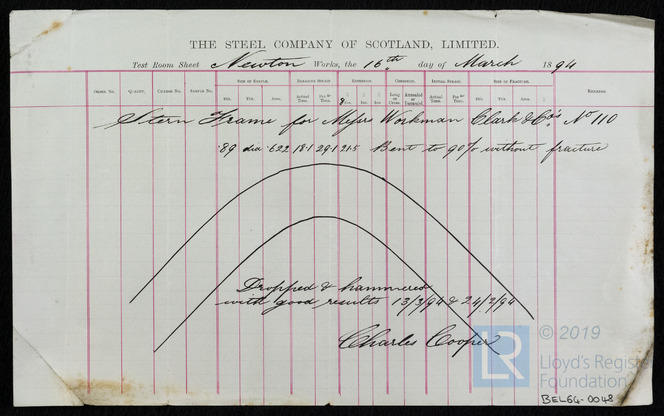 THE STEEL COMPANY OF SCOTLAND, LIMITED.
Test Room Sheet Newton Works, the 16th day of March 1894
SIZE OF SAMPLE. BREAKING STRAIN. EXTENSION. CONDITION. INITIAL STRAIN. SIZE OF FRACTURE.
ORDER NO. QUALITY. CHARGE NO. SAMPLE NO. Area. Actual Tons. Per □" Tons. 8 Annealed or Unannealed. Actual Tons. Per □" Tons. Area. REMARKS.
Stern Frame for Messrs Workman Clark & Co's No 110
.89 dia .622 18.1 29.1 21.5 Bent to 90% without fracture
Dropped & hammered
with good results 13/3/94 & 24/2/94
Charles Cooper
© 2019
LR
Lloyd's Register
Foundation
BEL64-0048